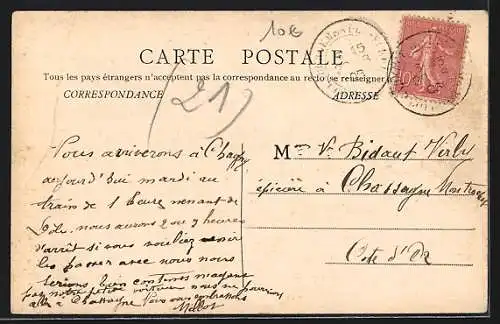 10G
CARTE POSTALE
Tous les pays étrangers n'acceptent pas la correspondance au recto (se renseigner
CORRESPONDANCE
ADRESSE
(21)
Nous arriverons à Chagny
aujourd'hui mardi au
train de 1 heure venant de
nous aurons 2 ou 3 heures
d'arrêt si vous vouliez venir
les passer avec nous nous
serions bien contents
pas notre petite voiture nous ne pourrions
aller à Chassagne
Millot
Mme V. Bidault Verly
épicière à Chassagne Montrachet
Côte d'Or